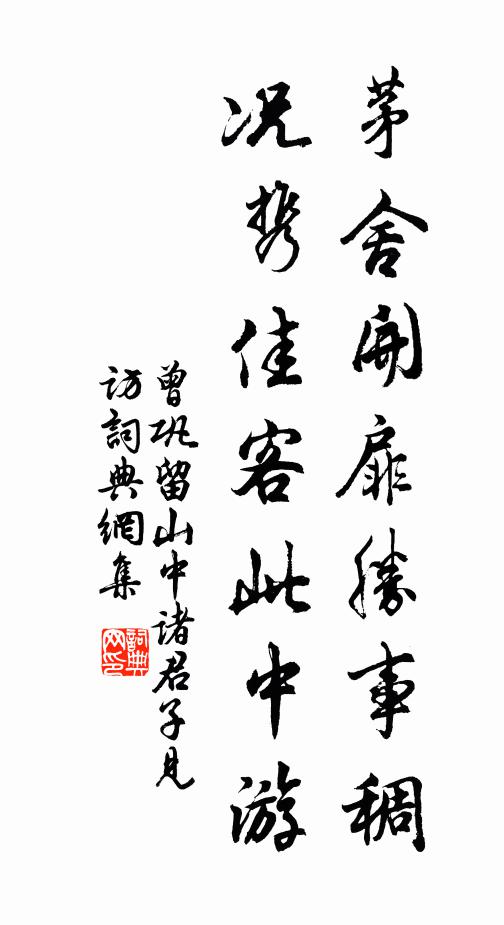 茅舍開扉勝事稠
况携佳客此中游
曾巩留山中诸君子見
访詞典網集
詞典网印